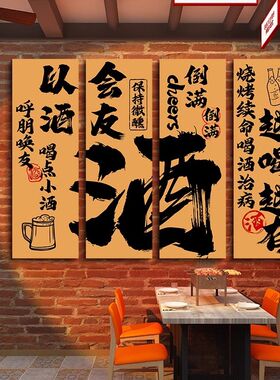 以酒
呼朋唤友
喝点小酒
会友
保持微醺
酒
cheers
倒满
倒满
烧烤续命喝酒治病
越喝越有